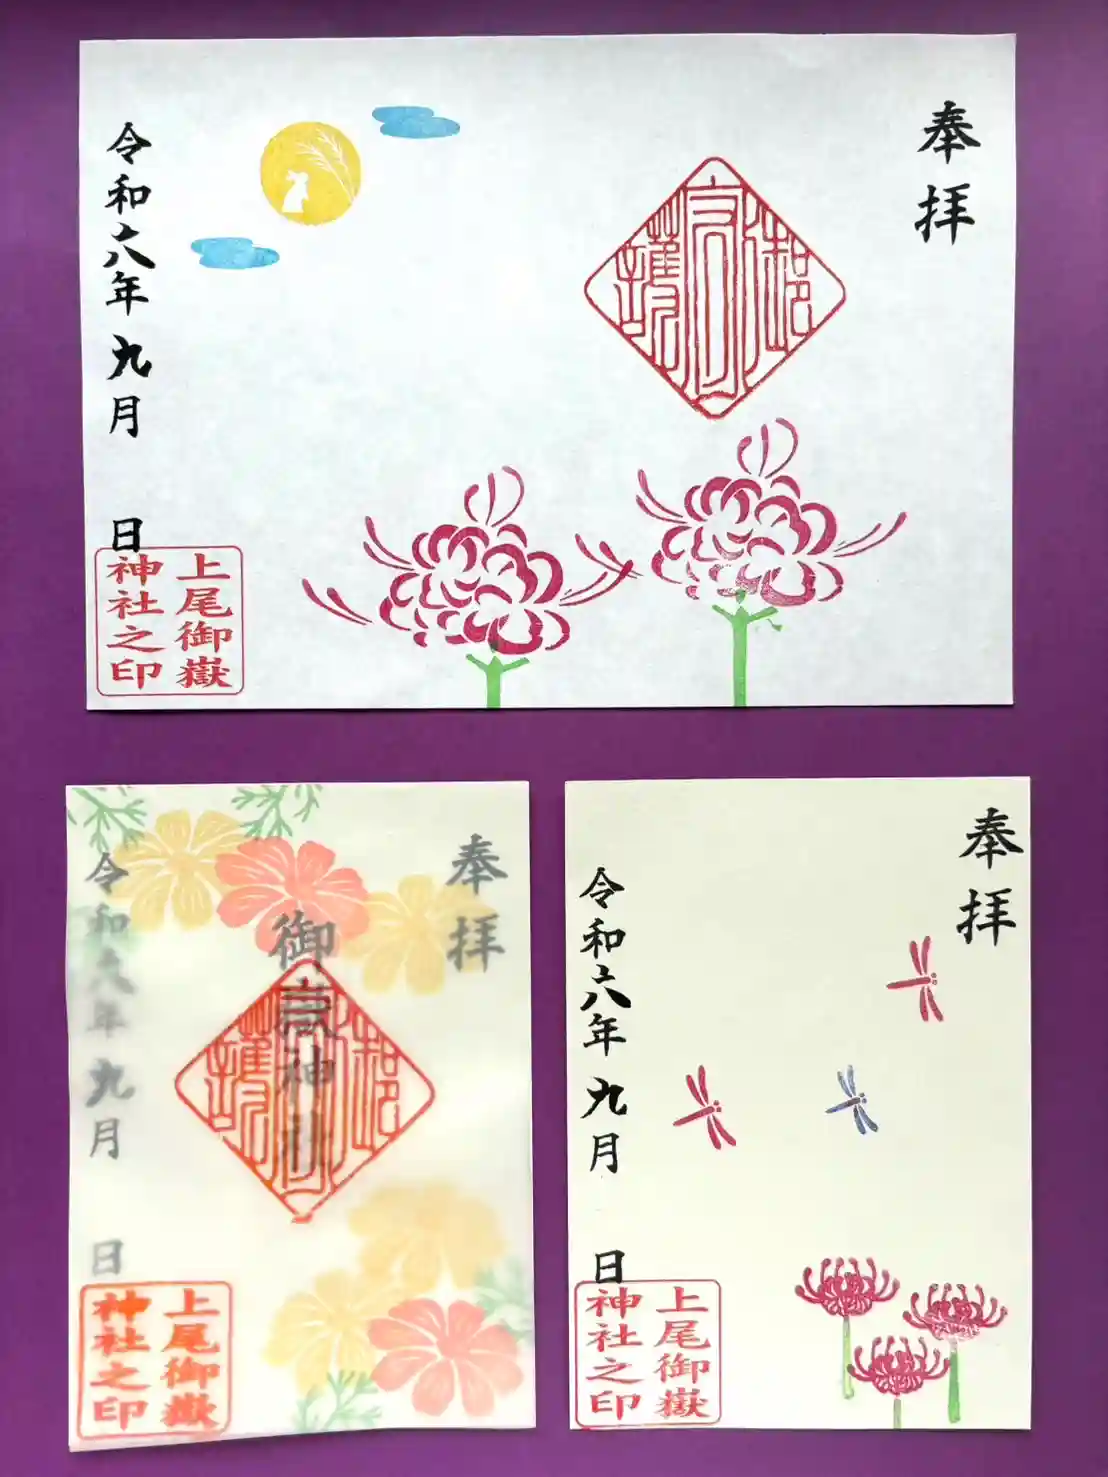 奉拝
御守護
令和六年九月 日
上尾御嶽
神社之印
奉拝
御嶽神社
御守護
令和六年九月 日
上尾御嶽
神社之印
奉拝
令和六年九月 日
上尾御嶽
神社之印